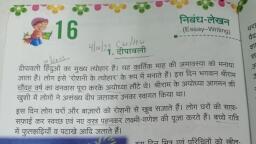 16
निबंध-लेखन
(Essay-Writing)
1. दीपावली
दीपावली हिंदुओं का मुख्य त्योहार है। यह कार्तिक माह की अमावस्या को मनाया
जाता है। लोग इसे 'रोशनी के त्योहार' के रूप में मनाते हैं। इस दिन भगवान श्रीराम
चौदह वर्ष का वनवास पूरा करके अयोध्या लौटे थे। श्रीराम के अयोध्या आगमन की
खुशी में लोगों ने असंख्य दीप जलाकर उनका स्वागत किया था।
इस दिन लोग घरों और बाजारों को रोशनी से खूब सजाते हैं। लोग घरों की साफ-
सफाई कर स्वच्छ एवं नए वस्त्र पहनकर लक्ष्मी-गणेश की पूजा करते हैं। बच्चे रात्रि
में फुलझड़ियाँ व पटाखे आदि जलाते हैं।
इस दिन मित्र एवं परिचितों को खील-